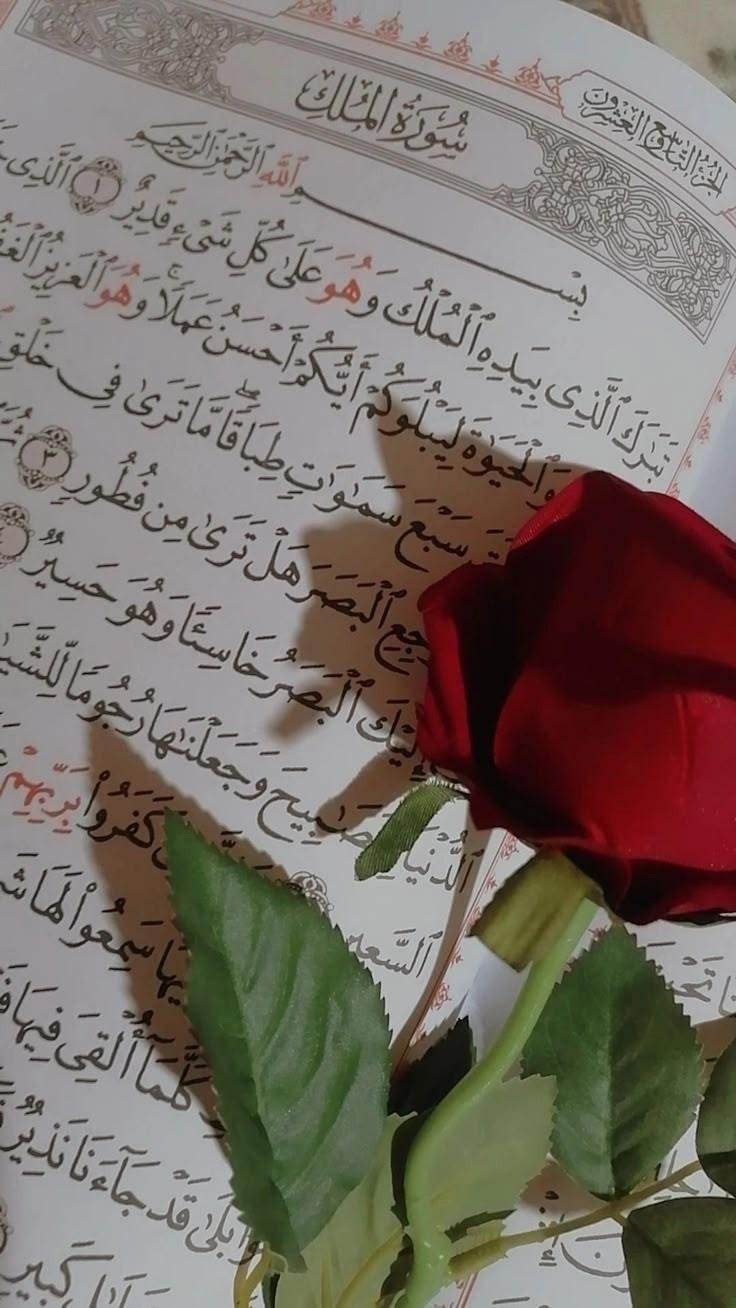 الجزء التاسع والعشرون
سُورَةُ المُلكِ
بِسْمِ ٱللَّهِ ٱلرَّحْمَٰنِ ٱلرَّحِيمِ
تَبَٰرَكَ ٱلَّذِى بِيَدِهِ ٱلْمُلْكُ وَهُوَ عَلَىٰ كُلِّ شَىْءٍ قَدِيرٌ ١ ٱلَّذِى
وَٱلْحَيَوٰةَ لِيَبْلُوَكُمْ أَيُّكُمْ أَحْسَنُ عَمَلًا ۚ وَهُوَ ٱلْعَزِيزُ
سَبْعَ سَمَٰوَٰتٍ طِبَاقًا ۖ مَّا تَرَىٰ فِى خَلْقِ
ٱلْبَصَرَ هَلْ تَرَىٰ مِن فُطُورٍ ٣
إِلَيْكَ ٱلْبَصَرُ خَاسِئًا وَهُوَ حَسِيرٌ
ٱلدُّنْيَا وَجَعَلْنَٰهَا رُجُومًا
ٱلسَّعِيرِ كَفَرُوا۟ بِرَبِّهِمْ
سَمِعُوا۟ لَهَا
كُلَّمَآ أُلْقِىَ فِيهَا
بَلَىٰ قَدْ جَآءَنَا نَذِيرٌ
كَبِيرٍ